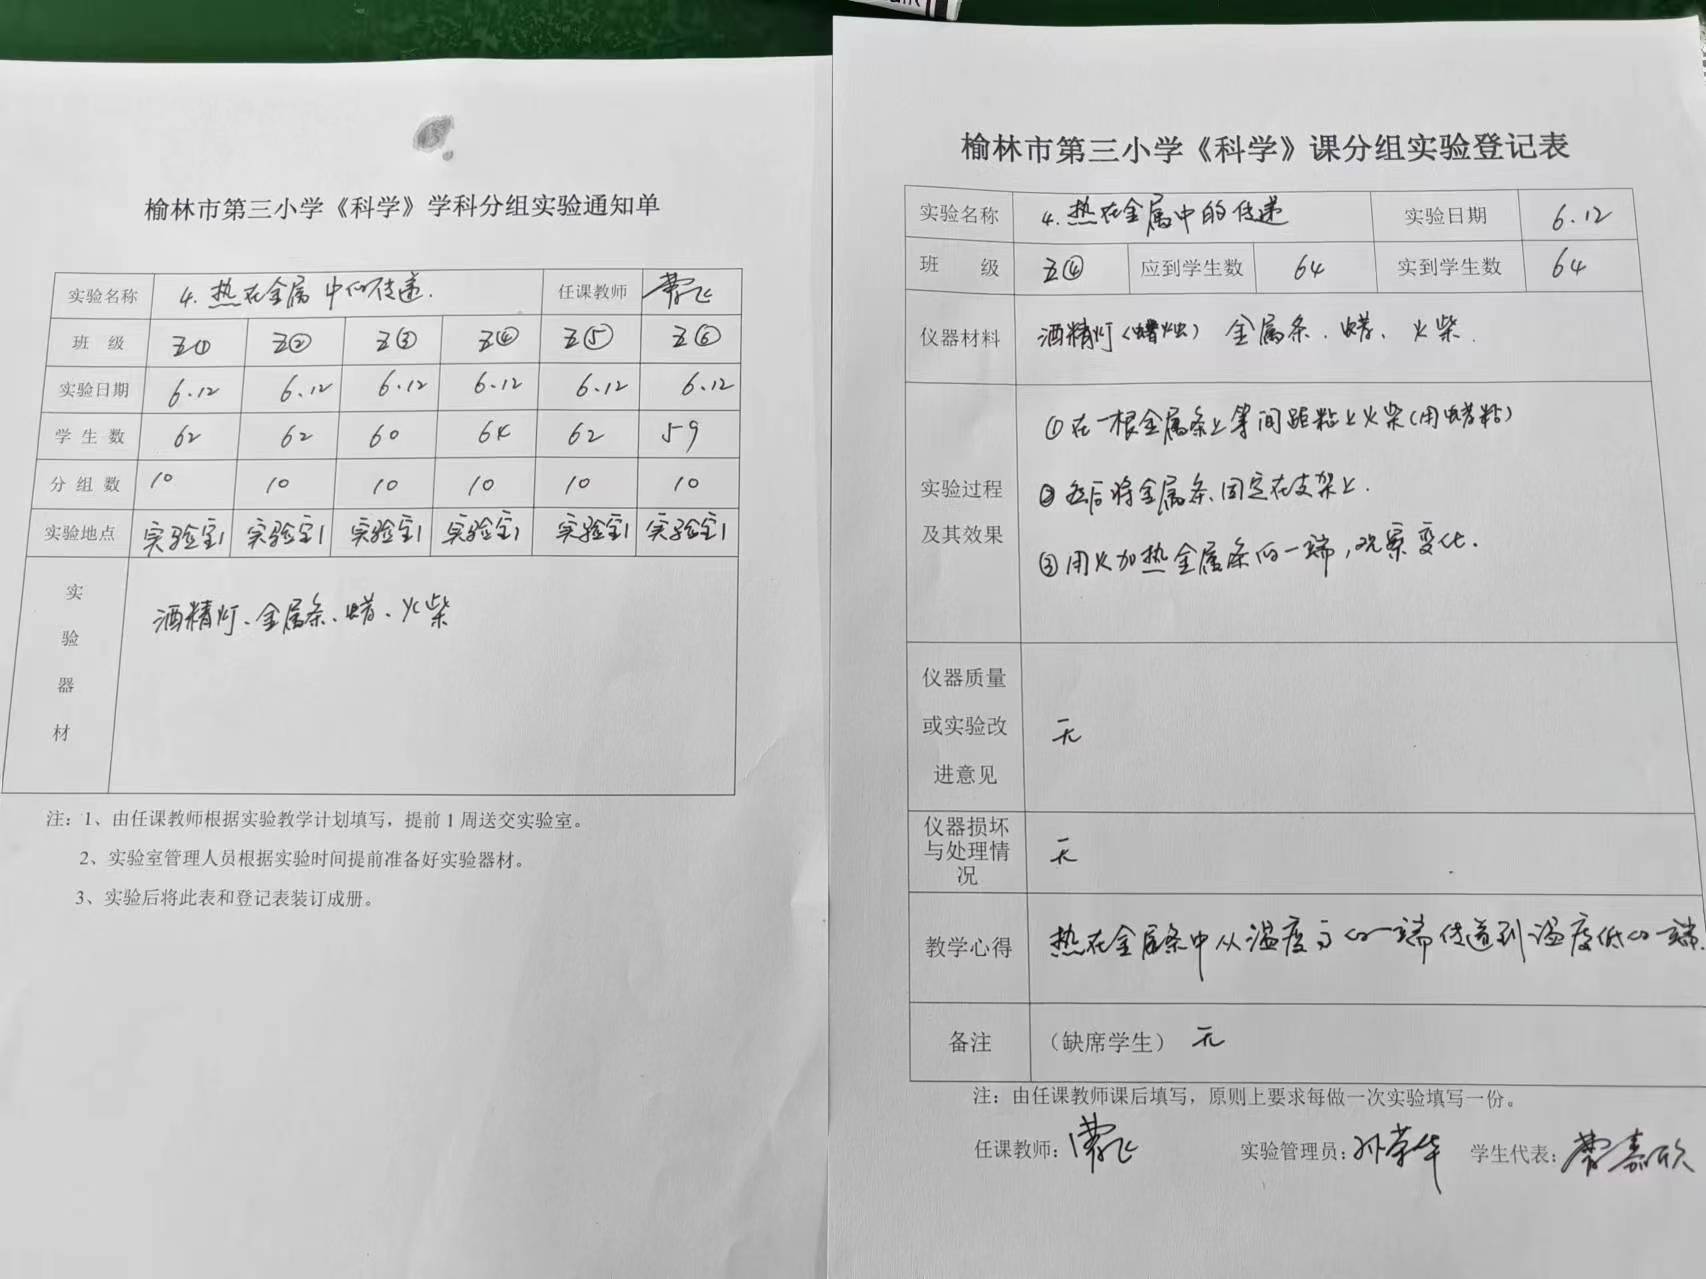 榆林市第三小学《科学》学科分组实验通知单
实验名称 4.热在金属中的传递. 任课教师
班 级 五① 五② 五③ 五④ 五⑤ 五⑥
实验日期 6.12 6.12 6.12 6.12 6.12 6.12
学生数 62 62 60 64 62 59
分组数 10 10 10 10 10 10
实验地点 实验室1 实验室1 实验室1 实验室1 实验室1 实验室1
实验器材 酒精灯、金属条、蜡、火柴
注：1、由任课教师根据实验教学计划填写，提前1周送交实验室。
2、实验室管理人员根据实验时间提前准备好实验器材。
3、实验后将此表和登记表装订成册。
榆林市第三小学《科学》课分组实验登记表
实验名称 4.热在金属中的传递 实验日期 6.12
班 级 五④ 应到学生数 64 实到学生数 64
仪器材料 酒精灯（蜡烛）金属条、蜡、火柴.
实验过程及其效果
①在一根金属条上等间距粘上火柴(用蜡粘)
②然后将金属条固定在支架上.
③用火加热金属条的一端,观察变化.
仪器质量或实验改进意见 无
仪器损坏与处理情况 无
教学心得 热在金属条中从温度高的一端传递到温度低的一端.
备注 （缺席学生） 无
注：由任课教师课后填写，原则上要求每做一次实验填写一份。
任课教师: 实验管理员:孙荣华 学生代表: